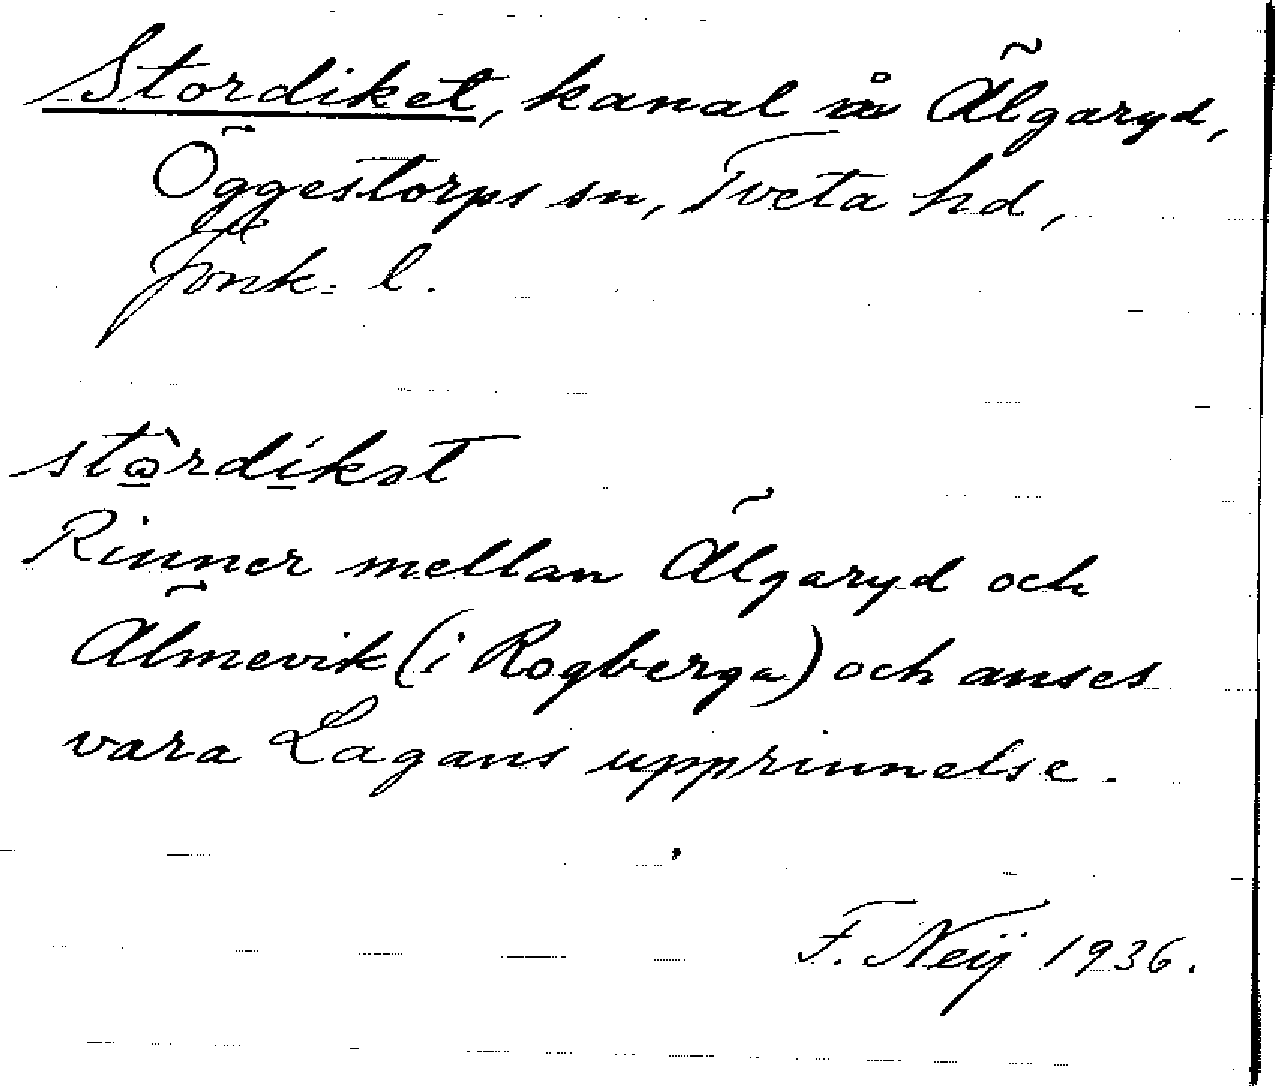 Stordiket, kanal å Älgaryd,
Öggestorps sn, Tveta hd,
Jönk. l.
stòrdíkət
Rinner mellan Älgaryd och
Älmevik (i Rogberga) och anses
vara Lagans upprinnelse.
F. Neij 1936.